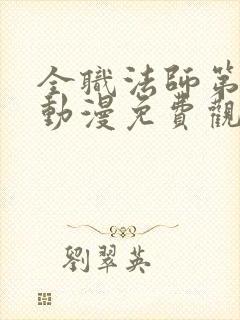 全職法師第
動漫免費觀
劉翠英